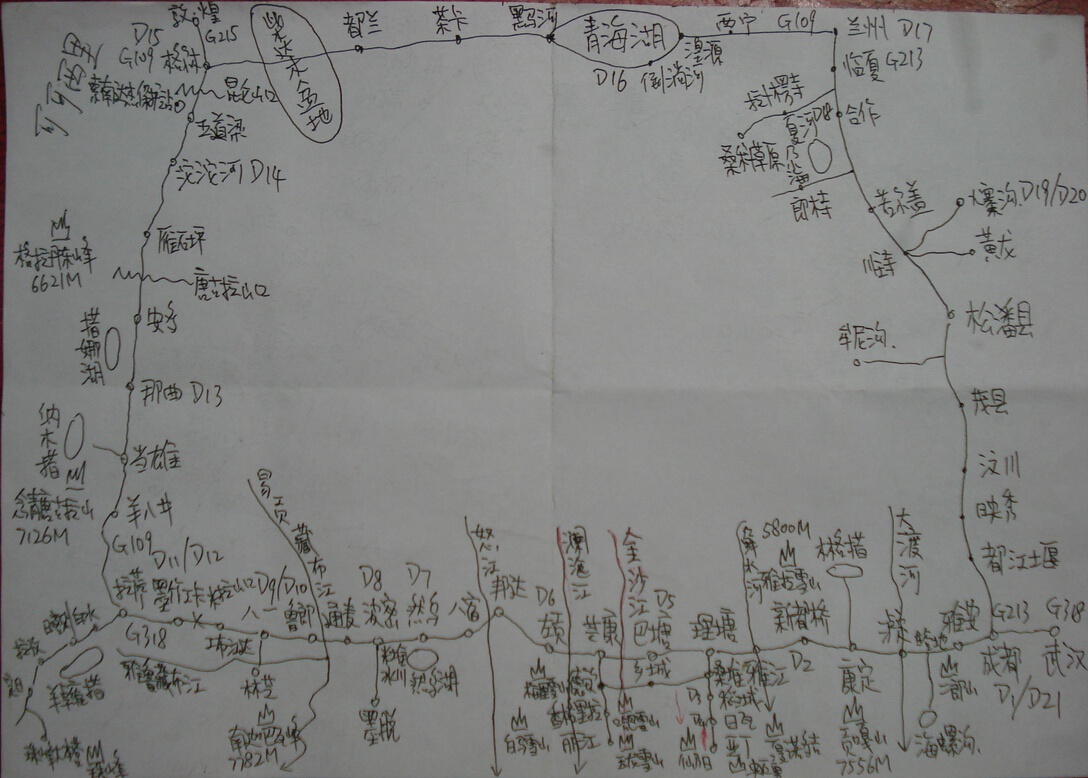 敦煌
D15
G109
G215
格尔木
可可西里
柴达木盆地
都兰
茶卡
黑马河
青海湖
D16
倒淌河
湟源
西宁
G109
兰州 D17
临夏 G213
合作
夏河 D18
桑科草原
尕海
郎木寺
若尔盖
九寨沟 D19/D20
黄龙
川主寺
松潘县
牟尼沟
茂县
汶川
映秀
都江堰
昆仑山口
五道梁
沱沱河 D14
雁石坪
格拉丹东山峰
6621M
唐古拉山口
安多
措娜湖
那曲 D13
纳木措
当雄
念青唐古拉山
7126M
羊八井
G109
D11/D12
拉萨
墨竹工卡
米拉山口
D9/D10
八一
鲁朗
易贡藏布江
通麦
D8
波密
D7
然乌
八宿
怒江
邦达
D6
澜沧江
芒康
金沙江
巴塘
D5
理塘
5800M
雅拉雪山
新都桥
木格措
大渡河
雅安
G213
G318
成都
武汉
D1/D21
康定
贡嘎山
7556M
海螺沟
D2
雅江
桑堆
稻城
日瓦
亚丁
D3
D4
仙乃日
夏诺多吉
乡城
德钦
香格里拉
丽江
梅里雪山
白马雪山
玉龙雪山
然乌湖
墨脱
林芝
南迦巴瓦峰
7782M
雅鲁藏布江
G318
羊卓雍措